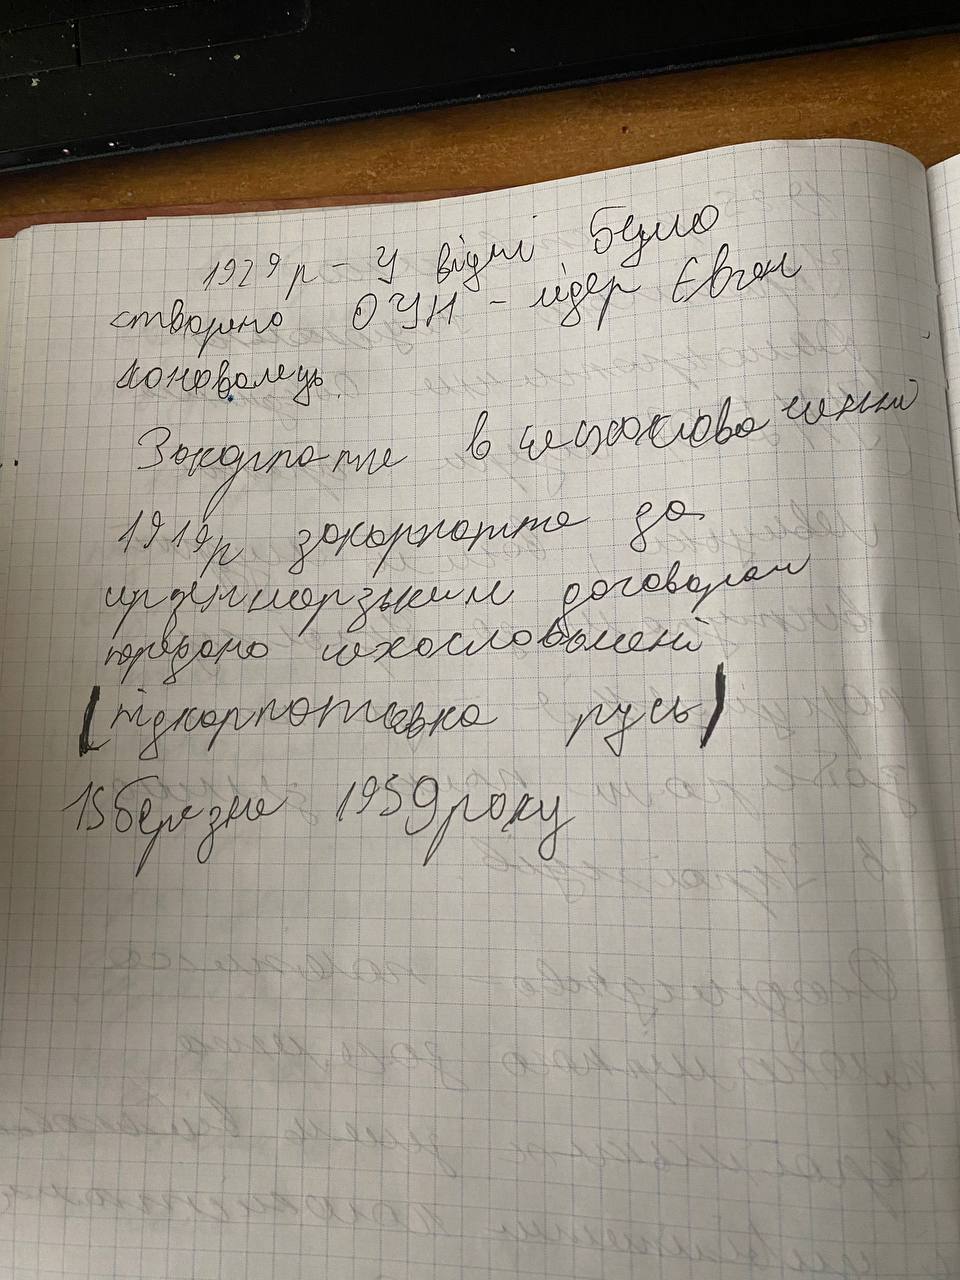 1929 р - У відні було
створено ОУН - лідер Євген
коновалець.
Закарпаття в чехословаччині
1919р закарпаття за
договорам
передано
(підкарпатська русь)
15 березня 1939 року